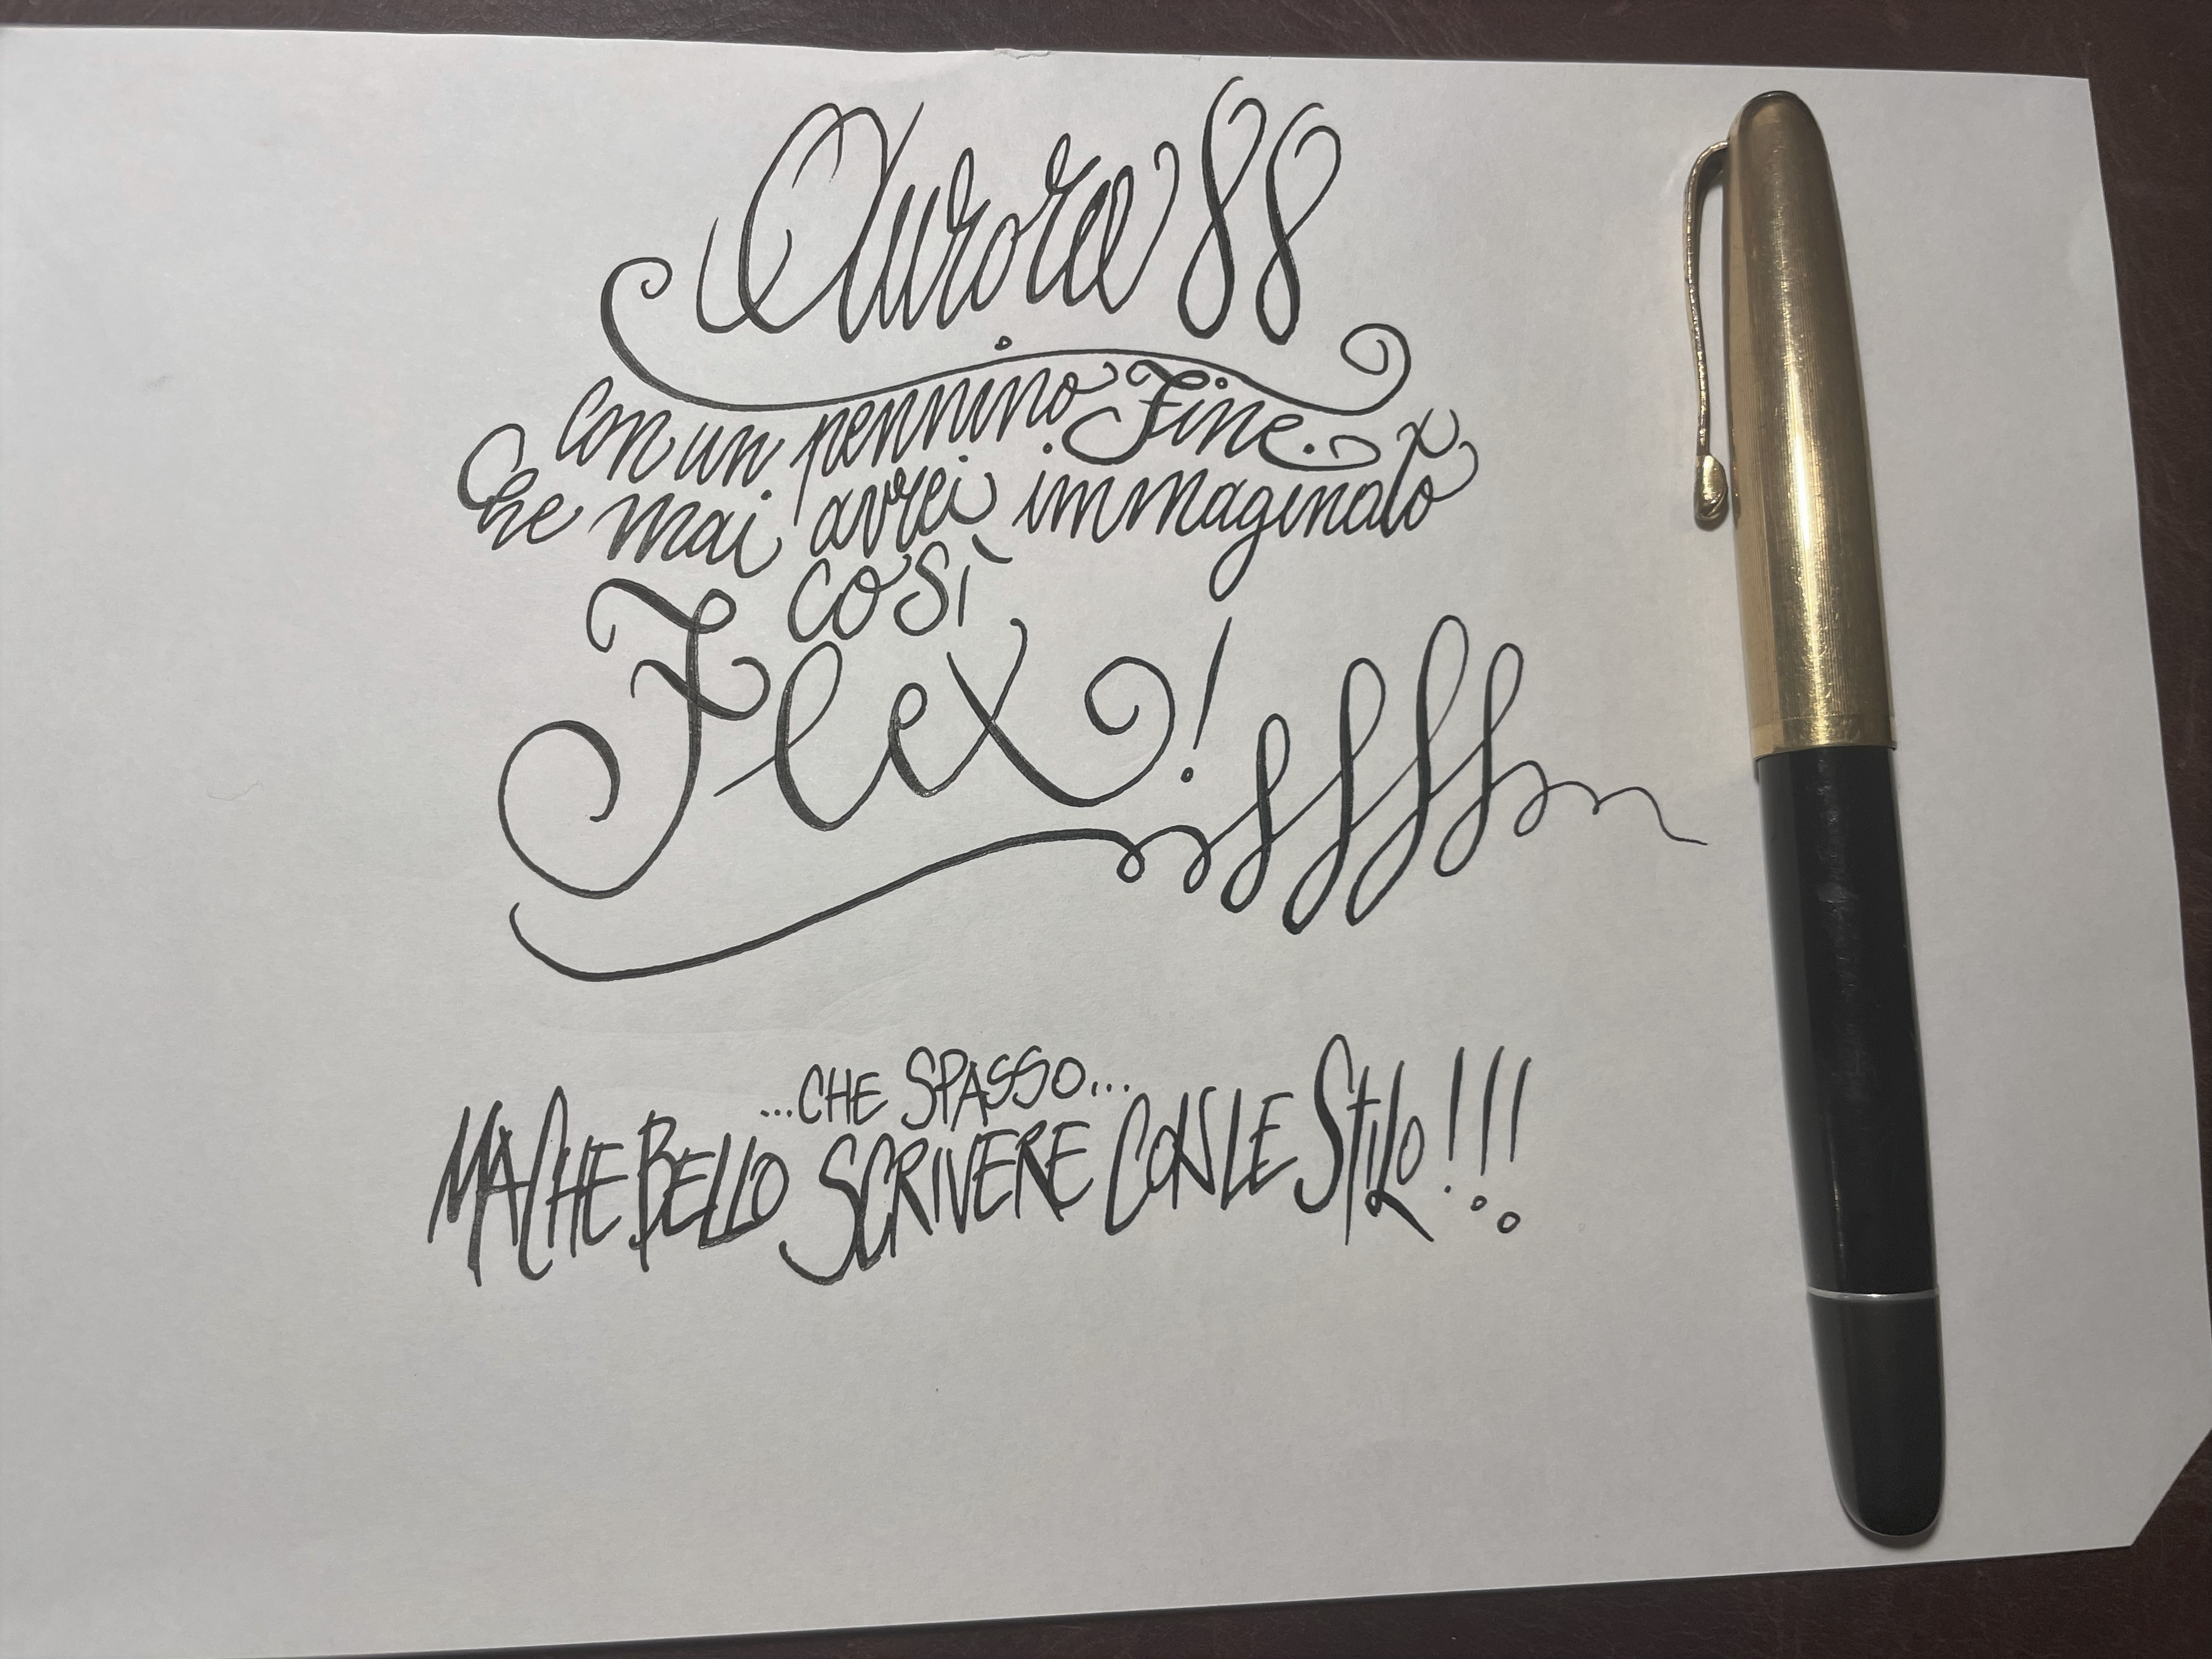 Aurora 88
con un pennino Fine.
Che mai avrei immaginato
così
Flex!
...CHE SPASSO...
MA CHE BELLO SCRIVERE CON LE STILO!!!